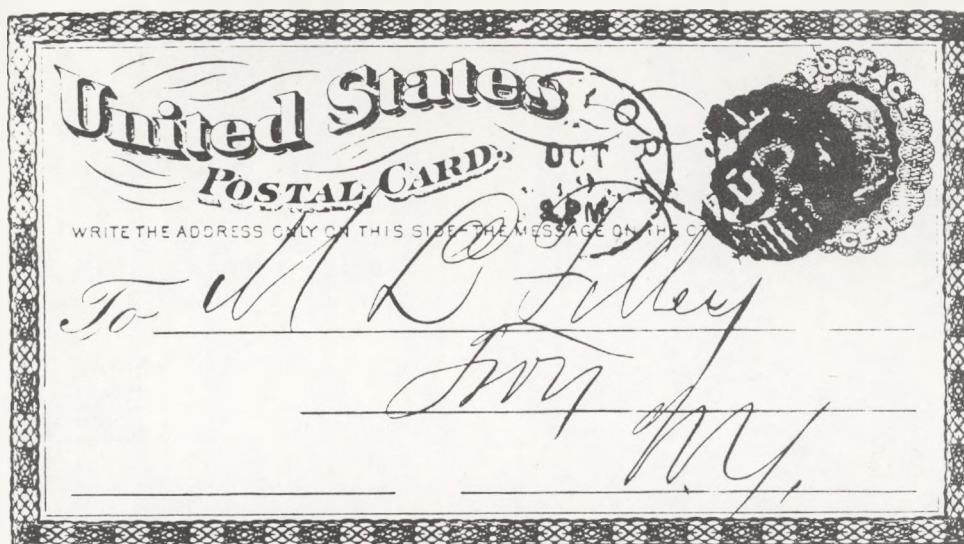 United States
POSTAL CARD.
YORK
OCT
8 PM
POSTAGE
WRITE THE ADDRESS ONLY ON THIS SIDE - THE MESSAGE ON THE
To M D Filley
Troy
N.Y.